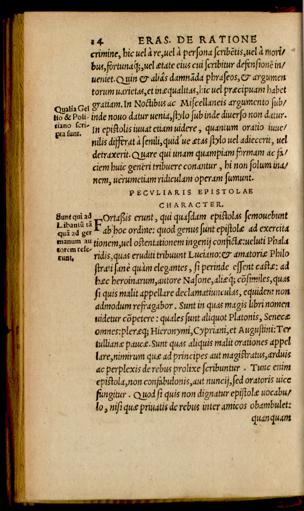 24 ERAS. DE RATIONE
crimine, hic uel à re, uel à persona scribẽtis, uel à mori
bus, fortunaq́;, uel ætate eius cui scribitur defensionẽ in/
ueniet. Quin & aliâs damnãda phraseos, & argumen
torum uarietas, et inæqualitas, hic uel præcipuam habet
gratiam. In Noctibus ac Miscellaneis argumento sub/
inde nouo datur uenia, stylo sub inde diuerso non datur.
In epistolis iuuat etiam uidere, quantum oratio iuue/
nilis differat à senili, quid uæ ætas stylo uel adiecerit, uel
detraxerit. Quare qui unam quampiam formam ac fa/
ciem huic generi tribuere conantur, hi non solum ina/
nem, uerumetiam ridiculam operam sumunt.
Qualia Gel
lio & Poli
tiano scri
pta sunt.
PECVLIARIS EPISTOLAE
CHARACTER.
Sunt qui ad
Libaniũ tã
quã ad ger
manum au
torem refe
runt,
Fortaßis erunt, qui quasdam epistolas semouebunt
ab hoc ordine: quod genus sunt epistolæ ad exercita
tionem, uel ostentationem ingenij confictæ: ueluti Phala
ridis, quas eruditi tribuunt Luciano: & amatoriæ Philo
strati sanè quàm elegantes, si perinde essent castæ: ad
hæc heroinarum, autore Nasone, aliæq́; cõsimiles, quas
si quis malit appellare declamatiunculas, equidem non
admodum refragabor. Sunt in quas magis libri nomen
uidetur cõpetere: quales sunt aliquot Platonis, Senecæ
omnes: pleræq; Hieronymi, Cypriani, et Augustini: Ter
tullianæ paucæ. Sunt quas aliquis malit orationes appel
lare, nimirum quæ ad principes aut magistratus, arduis
ac perplexis de rebus prolixe scribuntur. Tunc enim
epistola, non confabulonis, aut nuncij, sed oratoris uice
fungitur. Quod si quis non dignatur epistolæ uocabu/
lo, nisi quæ priuatis de rebus inter amicos obambulet:
quanquam